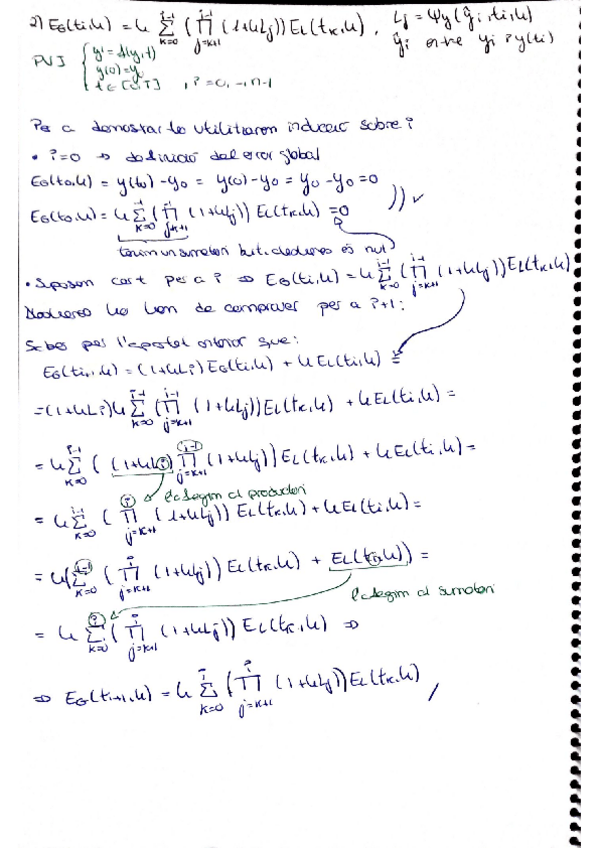 2) E_G(t_i,h) = h Σ_{k=0}^{i-1} (Π_{j=k+1}^{i-1} (1+hL_j)) E_L(t_k,h), L_j = Ψ_y(ŷ_j,t_j,h)
ŷ_i entre y_i i y(t_i)
PVI { y'=f(y,t)
y(0)=y_0
t∈[0,T] , i=0,..,n-1
Per a demostrar-ho utilitzarem inducció sobre i
• i=0 ⇒ definició del error global
E_G(t_0,h) = y(t_0) - y_0 = y(0) - y_0 = y_0 - y_0 = 0
E_G(t_0,h) = h Σ_{k=0}^{-1} (Π_{j=k+1}^{-1} (1+hL_j)) E_L(t_k,h) = 0 )) ✓
tenim un sumatori buit, aleshores és nul
• Suposem cert per a i ⇒ E_G(t_i,h) = h Σ_{k=0}^{i-1} (Π_{j=k+1}^{i-1} (1+hL_j)) E_L(t_k,h)
Aleshores ho hem de comprovar per a i+1:
Sabem per l'apartat anterior que:
E_G(t_{i+1},h) = (1+hL_i) E_G(t_i,h) + h E_L(t_i,h) =
= (1+hL_i) h Σ_{k=0}^{i-1} (Π_{j=k+1}^{i-1} (1+hL_j)) E_L(t_k,h) + h E_L(t_i,h) =
= h Σ_{k=0}^{i-1} ( (1+hL_i) Π_{j=k+1}^{i-1} (1+hL_j)) E_L(t_k,h) + h E_L(t_i,h) =
l'afegim al productori
= h Σ_{k=0}^{i-1} ( Π_{j=k+1}^{i} (1+hL_j)) E_L(t_k,h) + h E_L(t_i,h) =
= h( Σ_{k=0}^{i-1} ( Π_{j=k+1}^{i} (1+hL_j)) E_L(t_k,h) + E_L(t_i,h)) =
l'afegim al sumatori
= h Σ_{k=0}^{i} ( Π_{j=k+1}^{i} (1+hL_j)) E_L(t_k,h) ⇒
⇒ E_G(t_{i+1},h) = h Σ_{k=0}^{i} ( Π_{j=k+1}^{i} (1+hL_j)) E_L(t_k,h) /